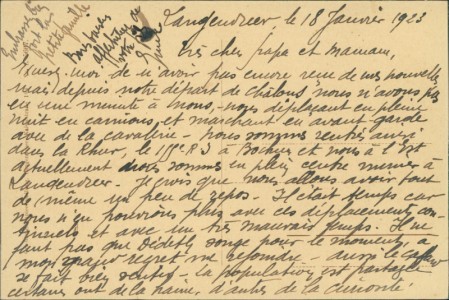 Langendreer, le 18 Janvier 1923
Très cher papa et Maman,
Excusez-moi de n'avoir pas encore de mes nouvelles
mais depuis notre départ de Châlons nous n'avons pas
eu une minute à nous, nous déplaçant en pleine
nuit en camions, et marchant en avant garde
avec de la cavalerie - nous sommes rentrés
dans la Rhur, le à Bochum et nous à l'Est
actuellement nous sommes en plein centre minier à
Langendreer - Je crois que nous allons avoir tout
de même un peu de repos - Il était temps car
nous n'en pouvions plus avec ces déplacements con-
tinuels et avec un très mauvais temps. Il ne
faut pas que Dédé songe pour le moment, à
mon grand regret me rejoindre - aussi le cafard
se fait très sentir - la population est partagée
certains ont de la haine, d'autres de la curiosité
Embrassez
petite famille
Bons baisers
affectueux de